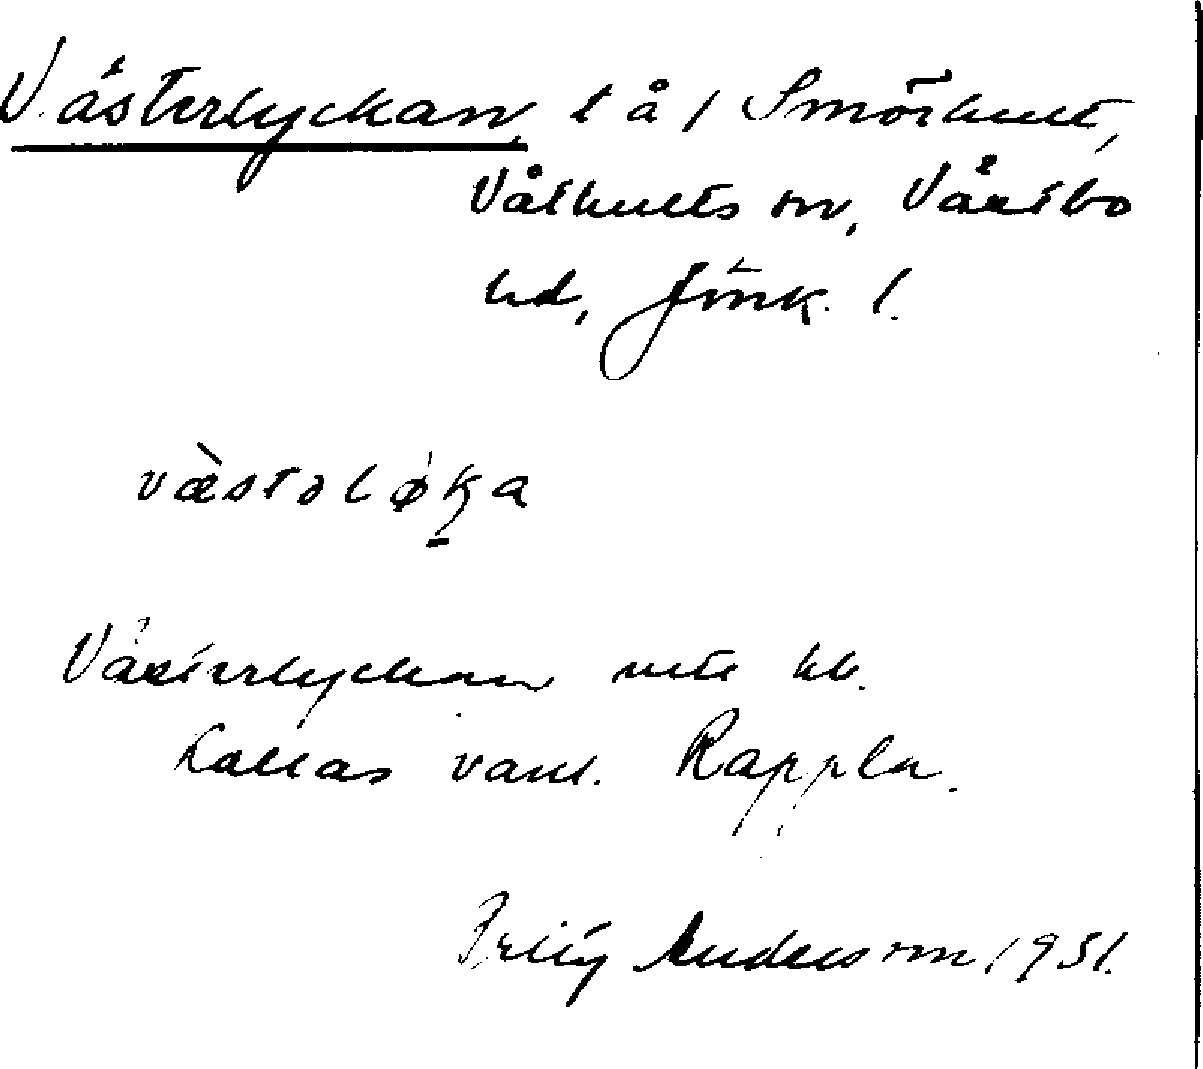 Västerlyckan, l å / Smörhult,
Våthults sn, Västbo
hd, Jönk. l.
væ̀stəløḵa
Västerlyckan enl. kk.
kallas vanl. Rappla.
Anderson 1951.